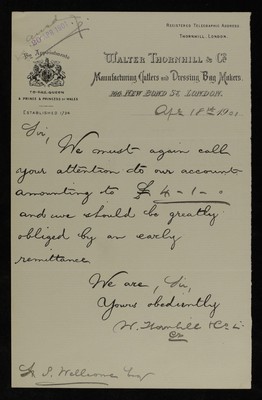 REGISTERED TELEGRAPHIC ADDRESS
THORNHILL, LONDON.
By Appointments
TO THE QUEEN
& PRINCE & PRINCESS OF WALES
ESTABLISHED 1734
WALTER THORNHILL & Co
Manufacturing Cutlers and Dressing Bag Makers.
144, NEW BOND ST. LONDON.
Apl 18th 1900
Sir,
We must again call
your attention to our account
amounting to £4-1-0
and we should be greatly
obliged by an early
remittance
We are, Sir,
Yours obediently
W. Thornhill & Co
J. Williams Esq